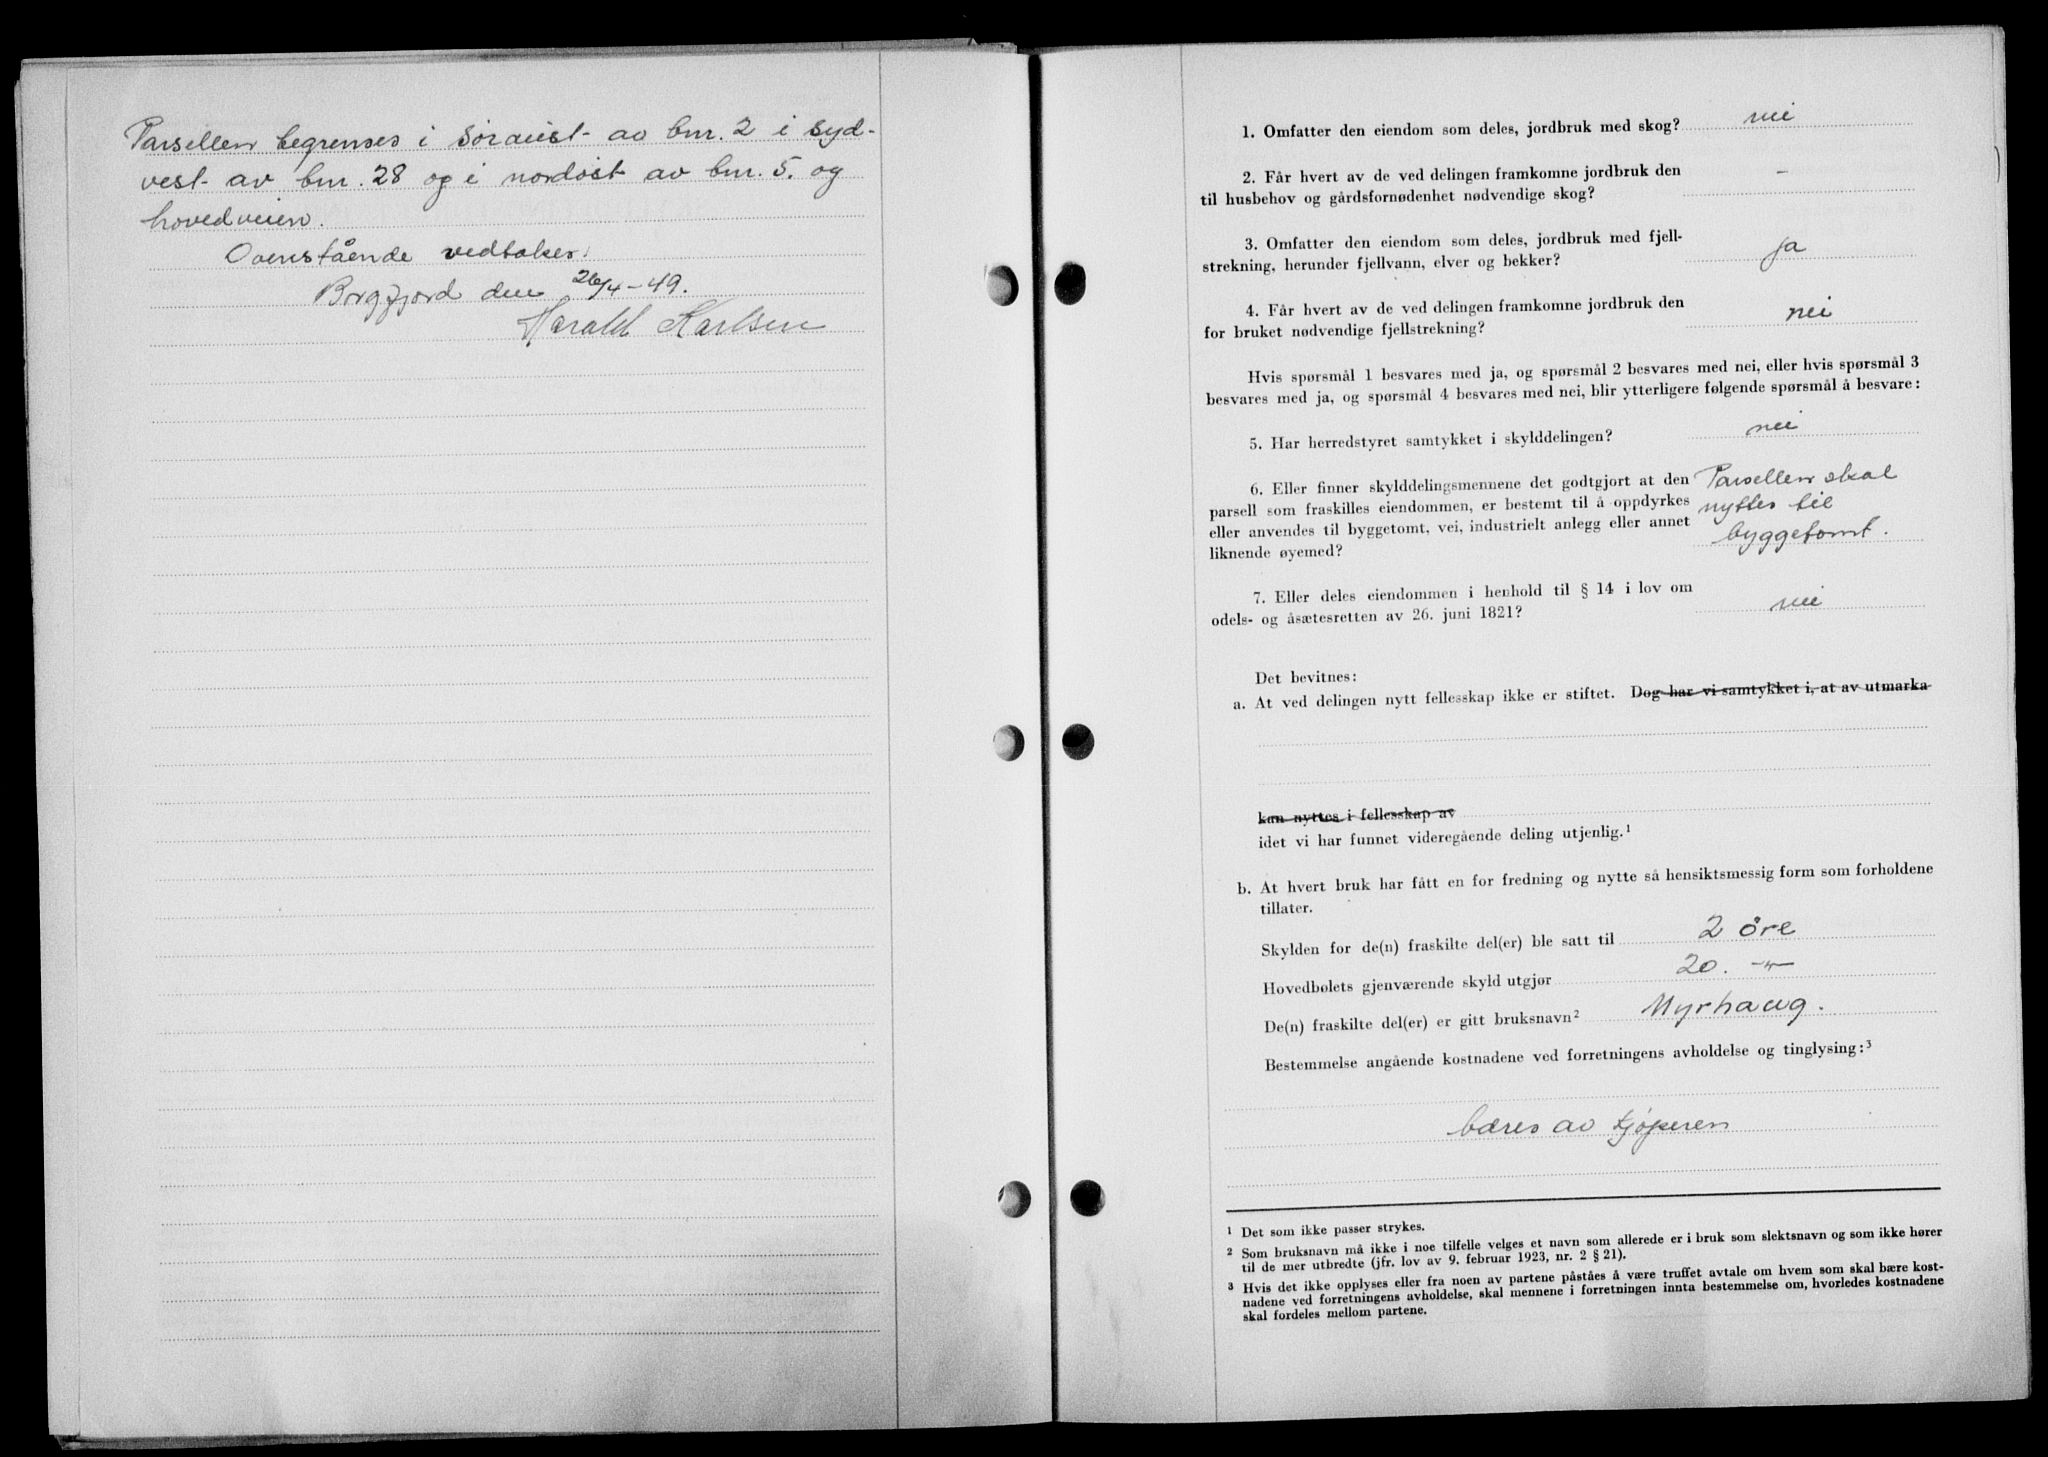 Parsellen begrenses i søraust av bnr. 2 i syd-
vest av bnr. 28 og i nordøst av bnr. 5. og
hovedveien.
Ovenstående vedtakes.
Borgfjord den 26/4-49.
Harald Karlsen
1. Omfatter den eiendom som deles, jordbruk med skog? nei
2. Får hvert av de ved delingen framkomne jordbruk den
til husbehov og gårdsfornødenhet nødvendige skog? -
3. Omfatter den eiendom som deles, jordbruk med fjell-
strekning, herunder fjellvann, elver og bekker? ja
4. Får hvert av de ved delingen framkomne jordbruk den
for bruket nødvendige fjellstrekning? nei
Hvis spørsmål 1 besvares med ja, og spørsmål 2 besvares med nei, eller hvis spørsmål 3
besvares med ja, og spørsmål 4 besvares med nei, blir ytterligere følgende spørsmål å besvare:
5. Har herredstyret samtykket i skylddelingen? nei
6. Eller finner skylddelingsmennene det godtgjort at den
parsell som fraskilles eiendommen, er bestemt til å oppdyrkes
eller anvendes til byggetomt, vei, industrielt anlegg eller annet
liknende øyemed?
Parsellen skal
nyttes til
byggetomt.
7. Eller deles eiendommen i henhold til § 14 i lov om
odels- og åsætesretten av 26. juni 1821? nei
Det bevitnes:
a. At ved delingen nytt fellesskap ikke er stiftet. Dog har vi samtykket i, at av utmarka
kan nyttes i fellesskap av
idet vi har funnet videregående deling utjenlig.¹
b. At hvert bruk har fått en for fredning og nytte så hensiktsmessig form som forholdene
tillater.
Skylden for de(n) fraskilte del(er) ble satt til 2 øre
Hovedbølets gjenværende skyld utgjør 20. -"-
De(n) fraskilte del(er) er gitt bruksnavn² Myrhaug.
Bestemmelse angående kostnadene ved forretningens avholdelse og tinglysing:³
bæres av kjøperen
¹ Det som ikke passer strykes.
² Som bruksnavn må ikke i noe tilfelle velges et navn som allerede er i bruk som slektsnavn og som ikke hører
til de mer utbredte (jfr. lov av 9. februar 1923, nr. 2 § 21).
³ Hvis det ikke opplyses eller fra noen av partene påståes å være truffet avtale om hvem som skal bære kost-
nadene ved forretningens avholdelse, skal mennene i forretningen innta bestemmelse om, hvorledes kostnadene
skal fordeles mellom partene.